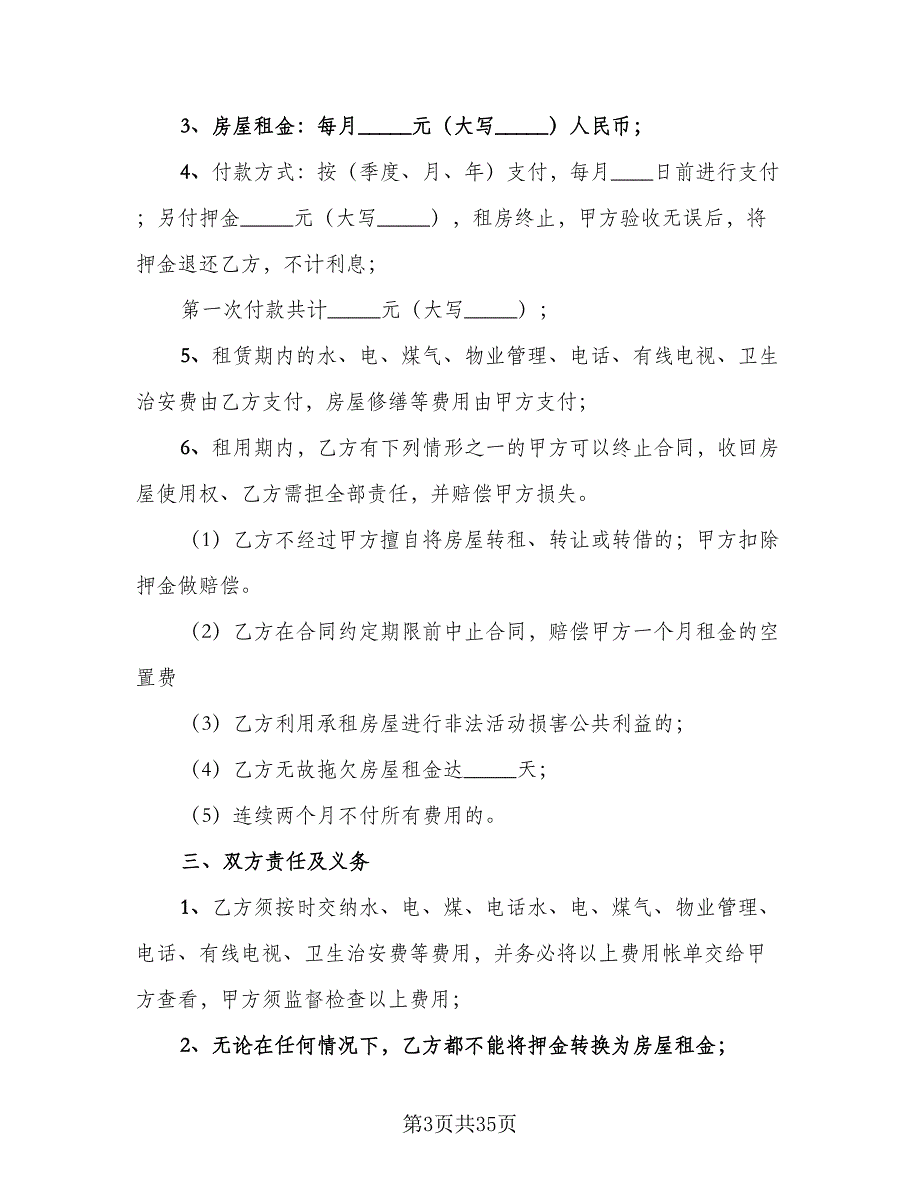 3、房屋租金：每月_____元（大写_____）人民币；
4、付款方式：按（季度、月、年）支付，每月____日前进行支付
；另付押金_____元（大写_____），租房终止，甲方验收无误后，将
押金退还乙方，不计利息；
第一次付款共计_____元（大写_____）；
5、租赁期内的水、电、煤气、物业管理、电话、有线电视、卫生
治安费由乙方支付，房屋修缮等费用由甲方支付；
6、租用期内，乙方有下列情形之一的甲方可以终止合同，收回房
屋使用权、乙方需担全部责任，并赔偿甲方损失。
（1）乙方不经过甲方擅自将房屋转租、转让或转借的；甲方扣除
押金做赔偿。
（2）乙方在合同约定期限前中止合同，赔偿甲方一个月租金的空
置费
（3）乙方利用承租房屋进行非法活动损害公共利益的；
（4）乙方无故拖欠房屋租金达_____天；
（5）连续两个月不付所有费用的。
三、双方责任及义务
1、乙方须按时交纳水、电、煤、电话水、电、煤气、物业管理、
电话、有线电视、卫生治安费等费用，并务必将以上费用帐单交给甲
方查看，甲方须监督检查以上费用；
2、无论在任何情况下，乙方都不能将押金转换为房屋租金；
第3页共35页